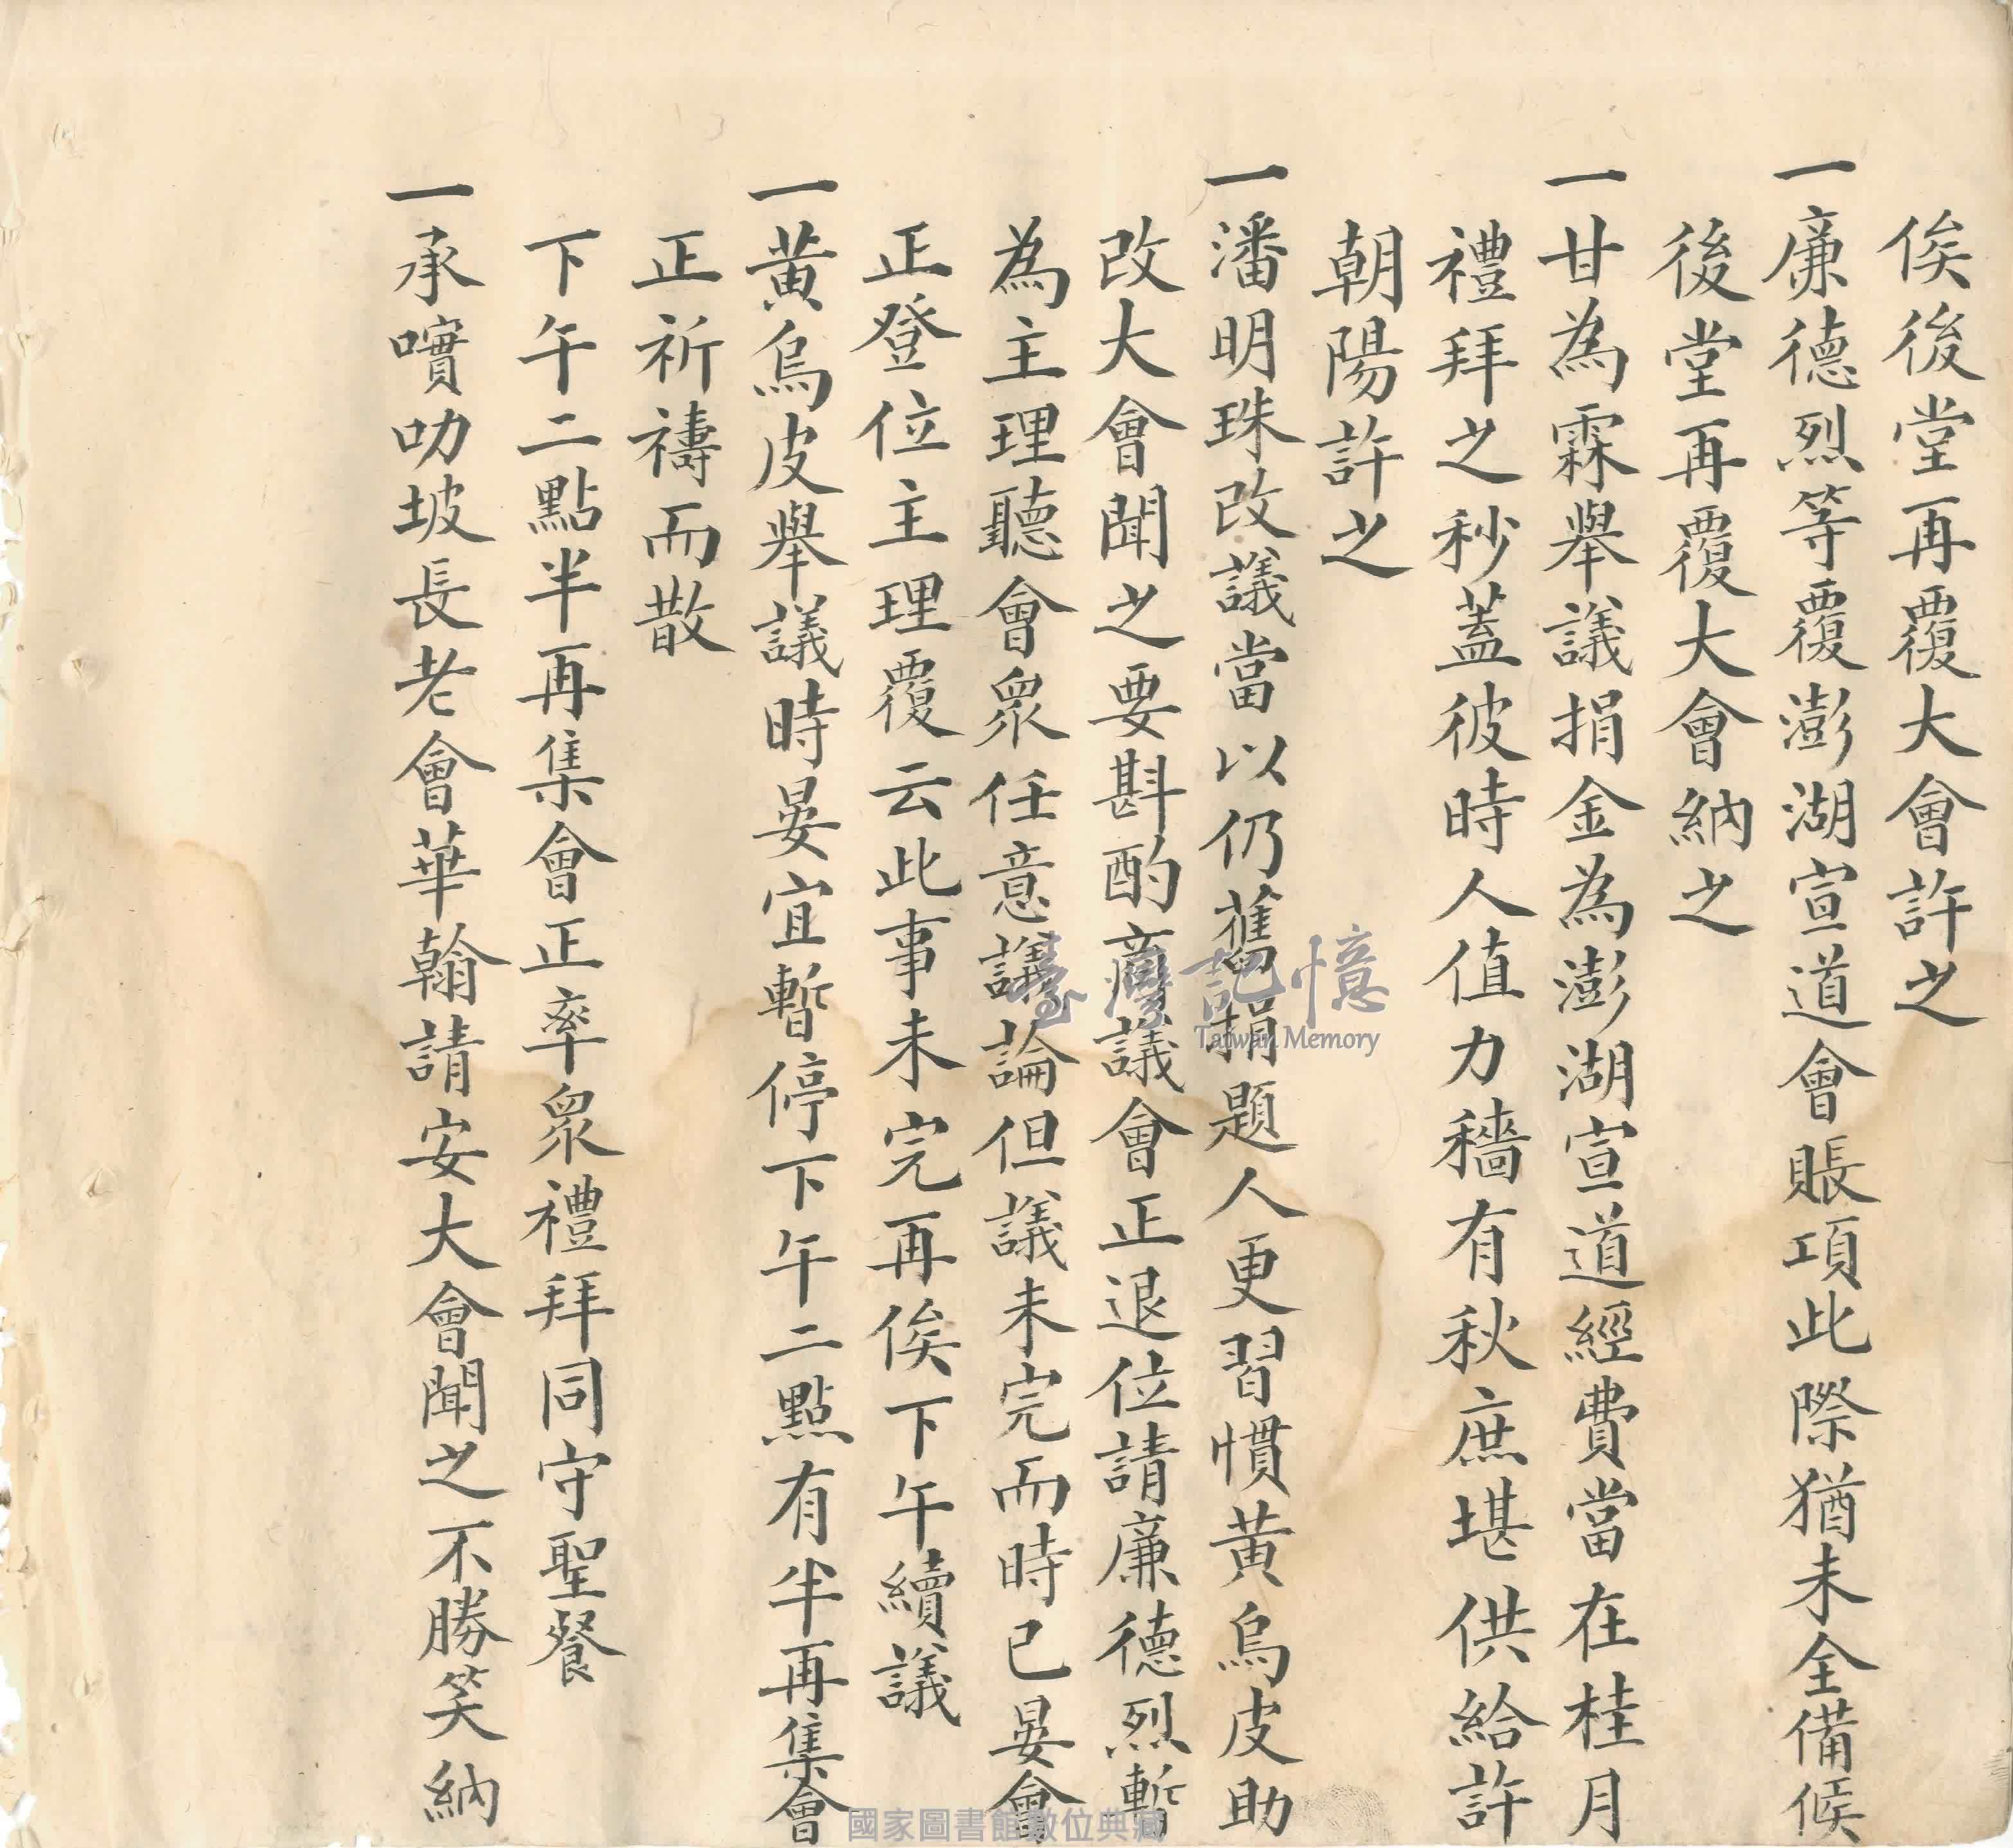 俟後堂再覆大會許之
一廉德烈等覆澎湖宣道會賬項此際猶未全備候
後堂再覆大會納之
一甘為霖舉議捐金為澎湖宣道經費當在桂月
禮拜之秒蓋彼時人值力穡有秋庶堪供給許
朝陽許之
一潘明珠改議當以仍舊捐題人更習慣黃烏皮助
改大會聞之要斟酌商議會正退位請廉德烈暫
為主理聽會眾任意議論但議未完而時已晏會
正登位主理覆云此事未完再俟下午續議
一黃烏皮舉議時晏宜暫停下午二點有半再集會
正祈禱而散
下午二點半再集會正率眾禮拜同守聖餐
一承嚝叻坡長老會華翰請安大會聞之不勝笑納
臺灣記憶
Taiwan Memory
國家圖書館數位典藏